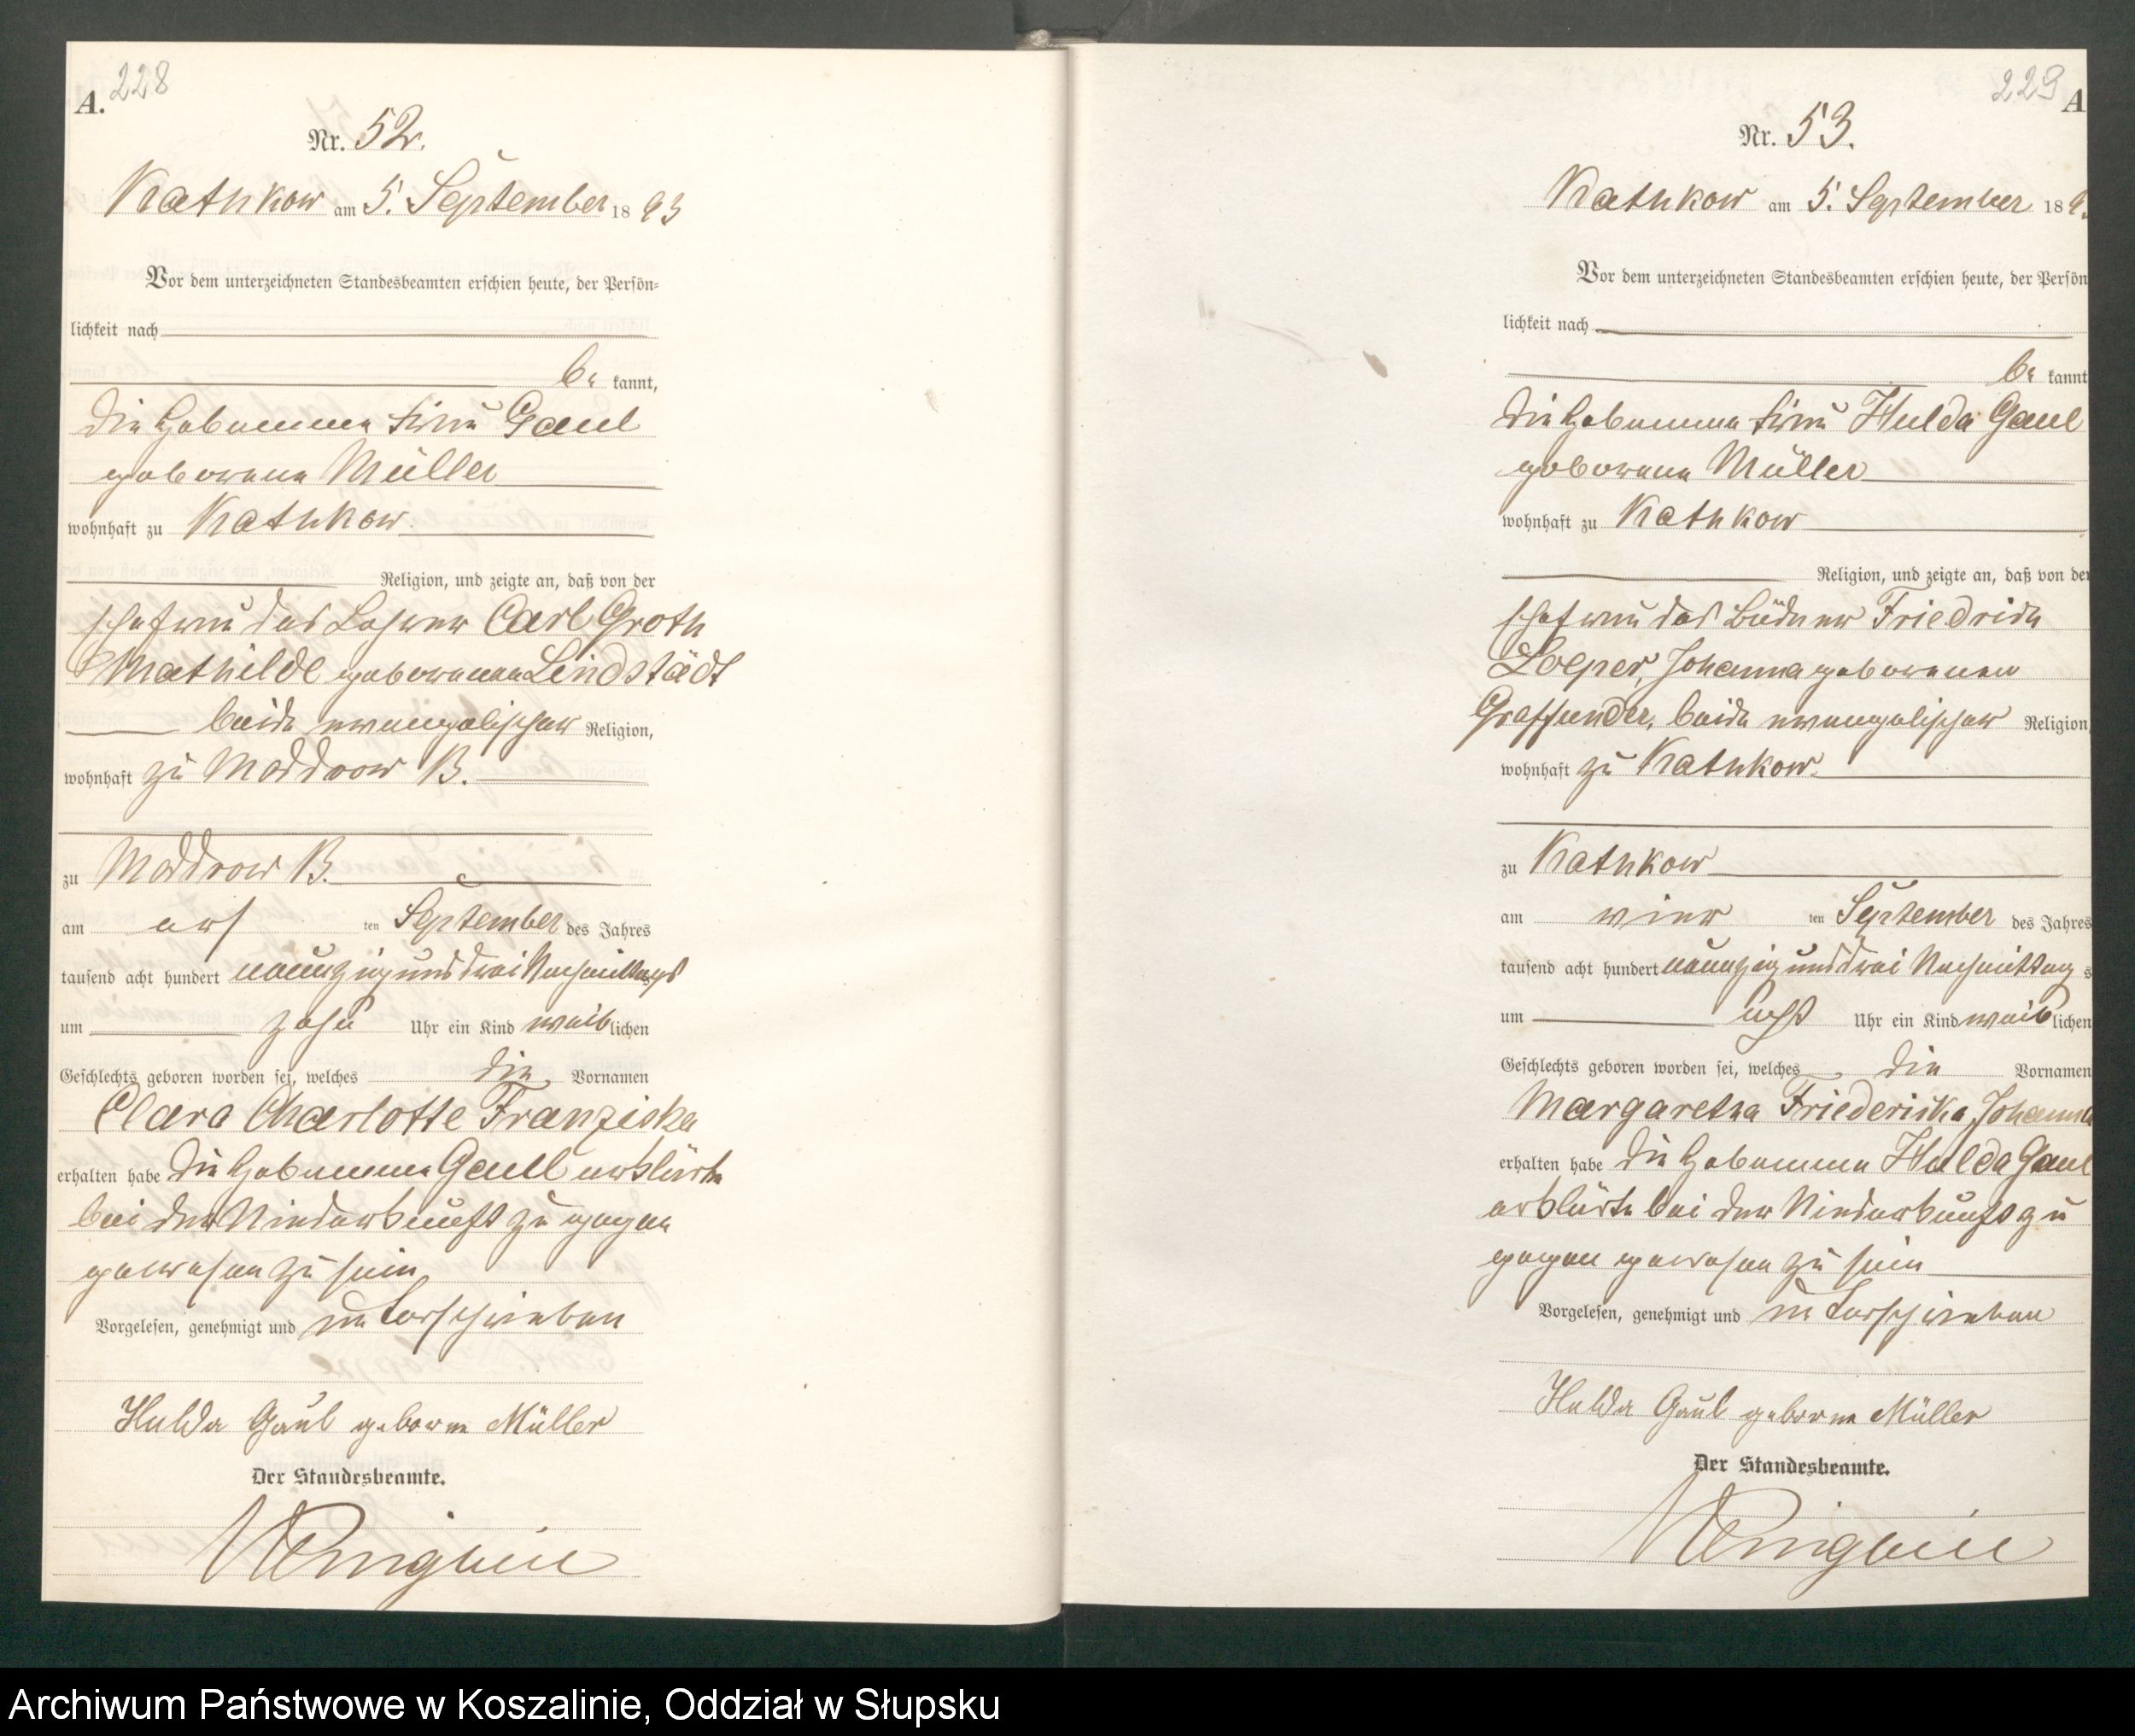 A. 228
Nr. 52.
Kathkow am 5. September 1893
Vor dem unterzeichneten Standesbeamten erschien heute, der Persön-
lichkeit nach
be kannt,
die Hebamme Frau Gaul
geborene Müller
wohnhaft zu Kathkow
Religion, und zeigte an, daß von der
Ehefrau des Carl Groth
Mathilde geborenen Lindstädt
beide evangelischer Religion,
wohnhaft zu Moddrow B.
zu Moddrow B.
am ersten September des Jahres
tausend acht hundert neunzig und drei Nachmittags
um zehn Uhr ein Kind weiblichen
Geschlechts geboren worden sei, welches die Vornamen
Clara Charlotte Franziska
erhalten habe die Hebamme Gaull erklärte
bei der Niederkunft zu gegen
gewesen zu sein
Vorgelesen, genehmigt und unterschrieben
Hulda Gaul geborne Müller
Der Standesbeamte.
229 A
Nr. 53.
Kathkow am 5. September 189
Vor dem unterzeichneten Standesbeamten erschien heute, der Persön
lichkeit nach
be kannt
die Hebamme Frau Hulda Gaul
geborene Müller
wohnhaft zu Kathkow
Religion, und zeigte an, daß von der
Ehefrau des Büdner Friedrich
Loeper, Johanna geborenen
Graffunder, beide evangelischer Religion,
wohnhaft zu Kathkow.
zu Kathkow
am vier ten September des Jahres
tausend acht hundert neunzig und drei Nachmittags
um acht Uhr ein Kind weiblichen
Geschlechts geboren worden sei, welches die Vornamen
Margaretha Friederika, Johanna
erhalten habe die Hebamme Hulda Gaul
erklärte bei der Niederkunft zu
gegen gewesen zu sein
Vorgelesen, genehmigt und unterschrieben
Hulda Gaul geborne Müller
Der Standesbeamte.
Archiwum Państwowe w Koszalinie, Oddział w Słupsku